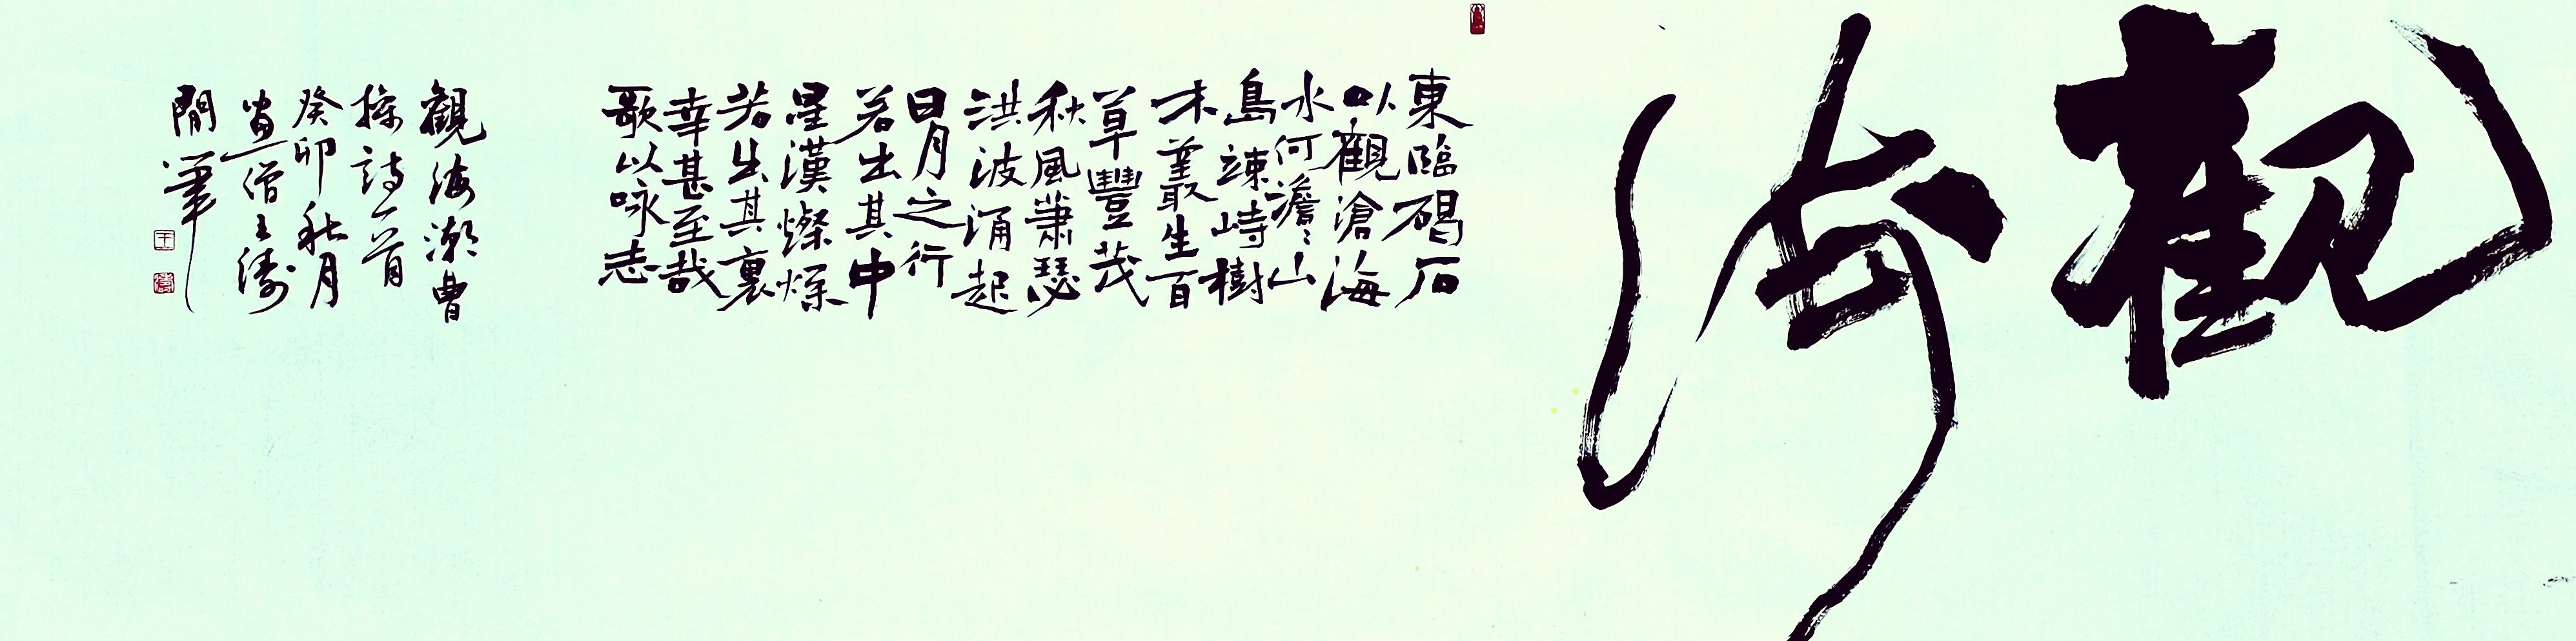 觀海
東臨碣石
以觀滄海
水何澹〻山
島竦峙樹
木叢生百
草豐茂
秋風蕭瑟
洪波涌起
日月之行
若出其中
星漢燦
若出其裏
幸甚至哉
歌以咏志
觀海潮曹
操詩一首
癸卯秋月
僧王濤
閒筆
王